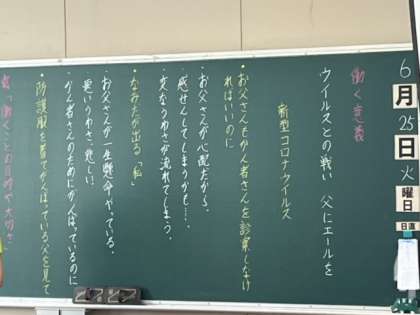 6
月
25
日
火
曜日
日直
働く意義
ウイルスとの戦い 父にエールを
新型コロナウイルス
・お父さんもがん者さんを診察しなけ
ればいいのに
・お父さんが心配だから。
・感せんしてしまうかも…。
・変なうわさが流れてしまう。
・なみだが出る「私」
・お父さんが一生懸命やっている。
・悪いうわさ、悲しい。
・がん者さんのためにがんばっているのに
・防護服を着てがんばっている父を見て
「働く」ことの目的や大切さ